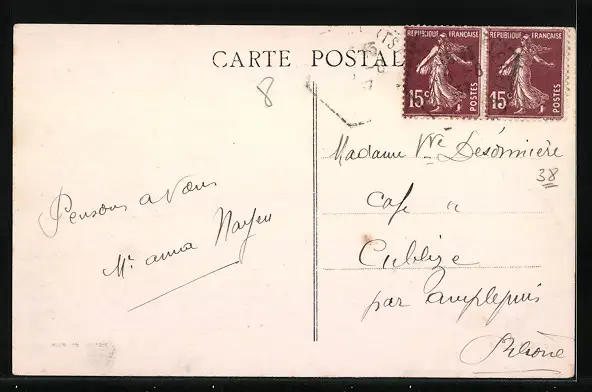 CARTE POSTALE
REPUBLIQUE FRANÇAISE
15c
POSTES
REPUBLIQUE FRANÇAISE
15c
POSTES
8
Madame Vve Désormière
38
Café "
Cublize
par Amplepuis
Rhône
Pensons a vous